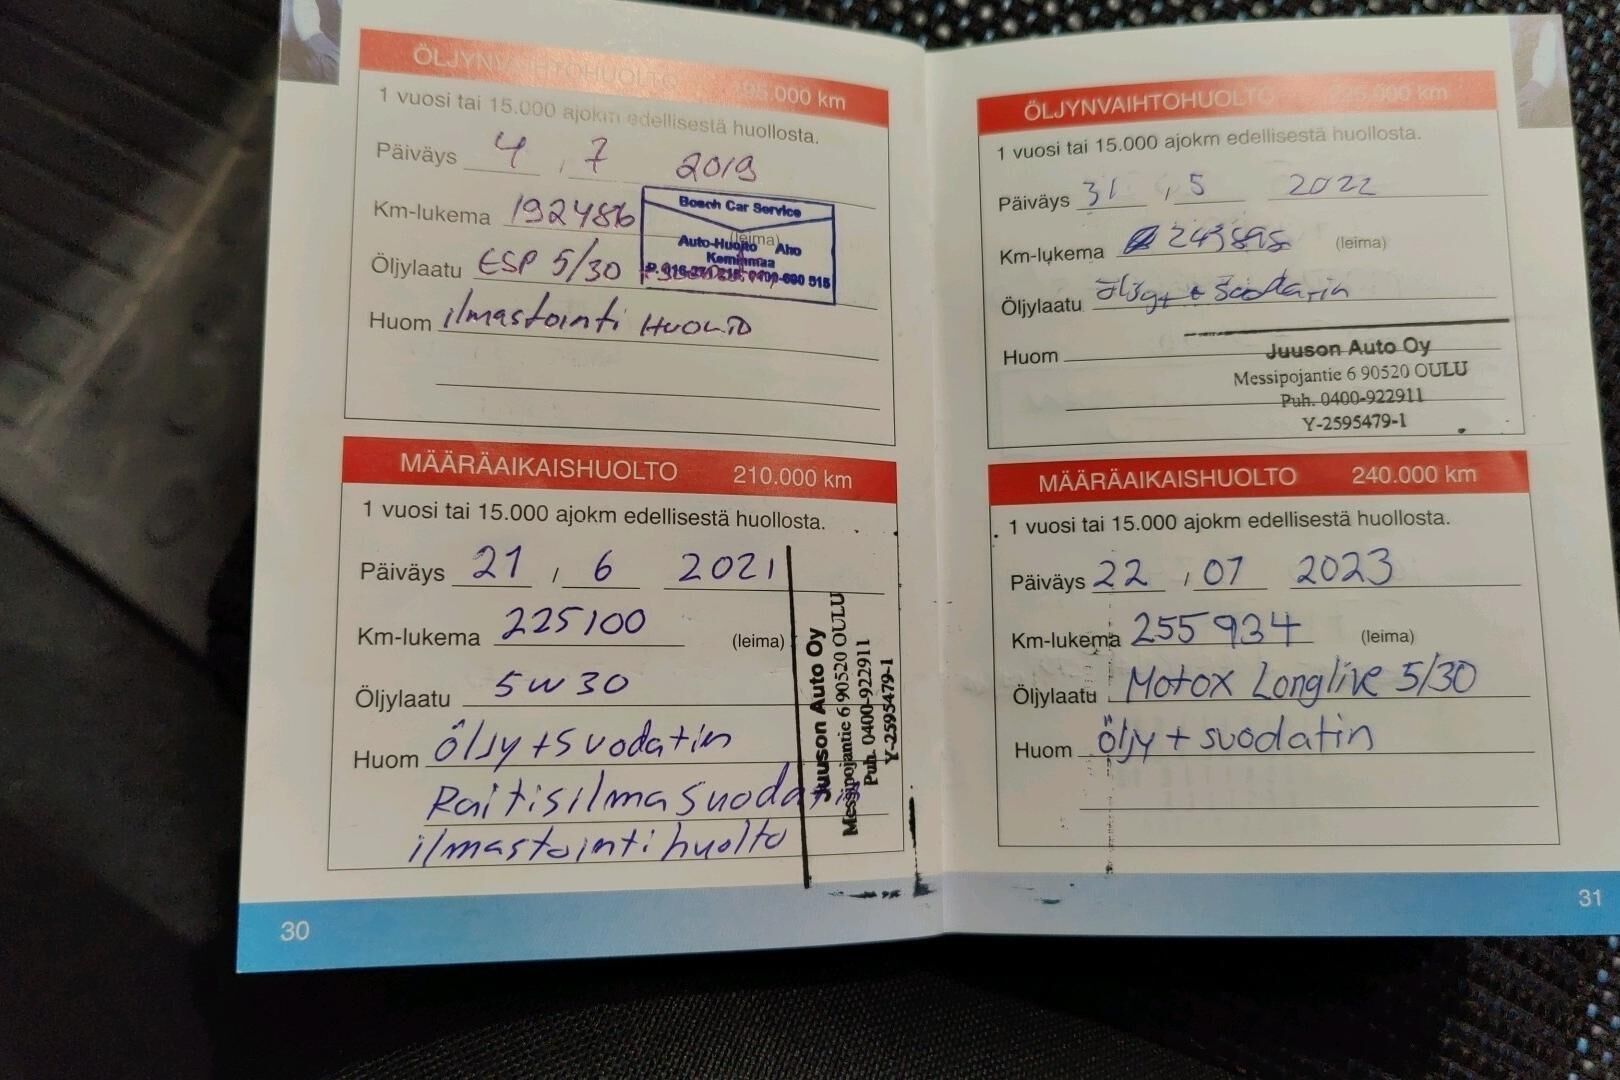 ÖLJYNVAIHTOHUOLTO 195.000 km
1 vuosi tai 15.000 ajokm edellisestä huollosta.
Päiväys 4 , 7 2019
Km-lukema 192486 (leima)
Öljylaatu ESP 5/30
Huom ilmastointi HUOLTO
Bosch Car Service
Auto-Huolto Aho
Keminmaa
MÄÄRÄAIKAISHUOLTO 210.000 km
1 vuosi tai 15.000 ajokm edellisestä huollosta.
Päiväys 21 / 6 2021
Km-lukema 225100 (leima)
Öljylaatu 5W30
Huom öljy + suodatin
Raitisilmasuodatin
ilmastointihuolto
Juuson Auto Oy
Messipojantie 6 90520 OULU
Puh. 0400-922911
Y-2595479-1
30
ÖLJYNVAIHTOHUOLTO 225.000 km
1 vuosi tai 15.000 ajokm edellisestä huollosta.
Päiväys 31 , 5 2022
Km-lukema (leima)
Öljylaatu
Huom
Juuson Auto Oy
Messipojantie 6 90520 OULU
Puh. 0400-922911
Y-2595479-1
MÄÄRÄAIKAISHUOLTO 240.000 km
1 vuosi tai 15.000 ajokm edellisestä huollosta.
Päiväys 22 , 07 2023
Km-lukema 255934 (leima)
Öljylaatu Motox Longlive 5/30
Huom öljy + suodatin
31